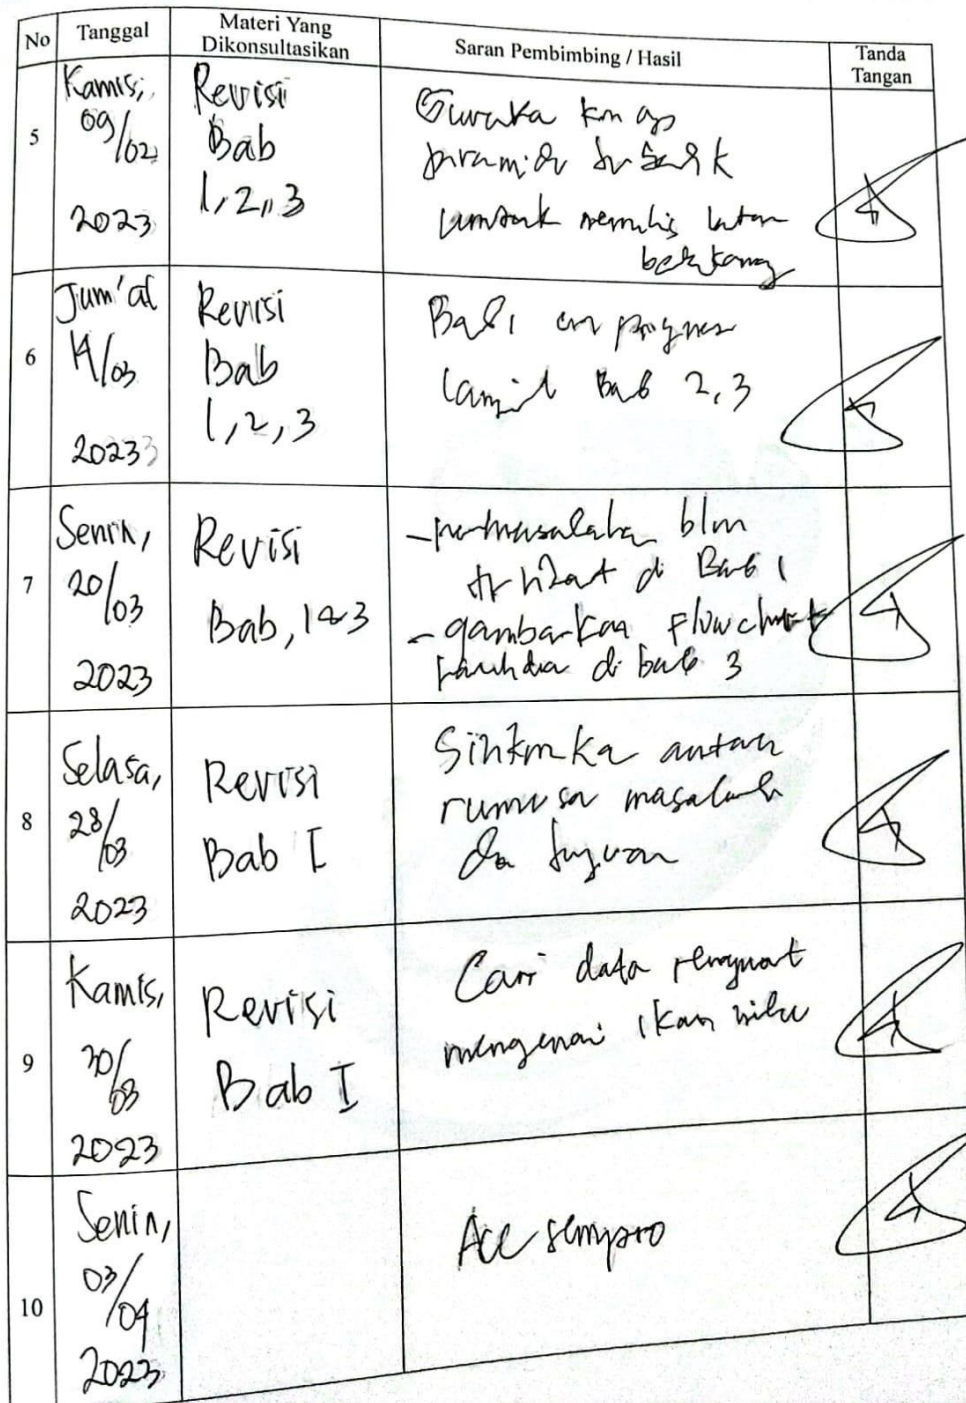 No Tanggal Materi Yang Dikonsultasikan Saran Pembimbing / Hasil Tanda Tangan
5
Kamis,
09/02
2023
Revisi
Bab
1,2,3
untuk menulis latar
belakang
6
Jum'at
/03
2023
Revisi
Bab
1,2,3
Bab 1
lanjut Bab 2,3
7
Senin,
20/03
2023
Revisi
Bab, 1 & 3
- permasalahan blm
terlihat di Bab 1
- gambarkan flowchart
di bab 3
8
Selasa,
28/03
2023
Revisi
Bab I
antara
rumusan masalah
dan tujuan
9
Kamis,
30/03
2023
Revisi
Bab I
Cari data penguat
mengenai ikan
10
Senin,
03/04
2023
Acc sempro